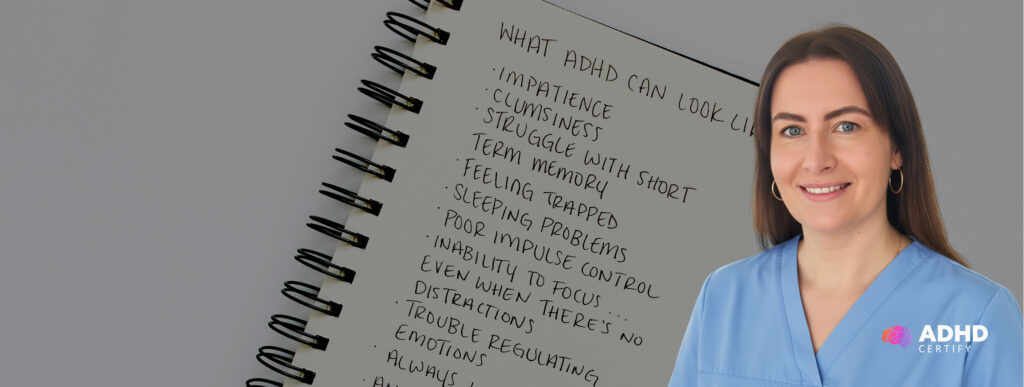 WHAT ADHD CAN LOOK
· IMPATIENCE
· CLUMSINESS
· STRUGGLE WITH SHORT
TERM MEMORY
· FEELING TRAPPED
· SLEEPING PROBLEMS
· POOR IMPULSE CONTROL
· INABILITY TO FOCUS...
EVEN WHEN THERE'S NO
DISTRACTIONS
· TROUBLE REGULATING
EMOTIONS
· ALWAYS
ADHD
CERTIFY